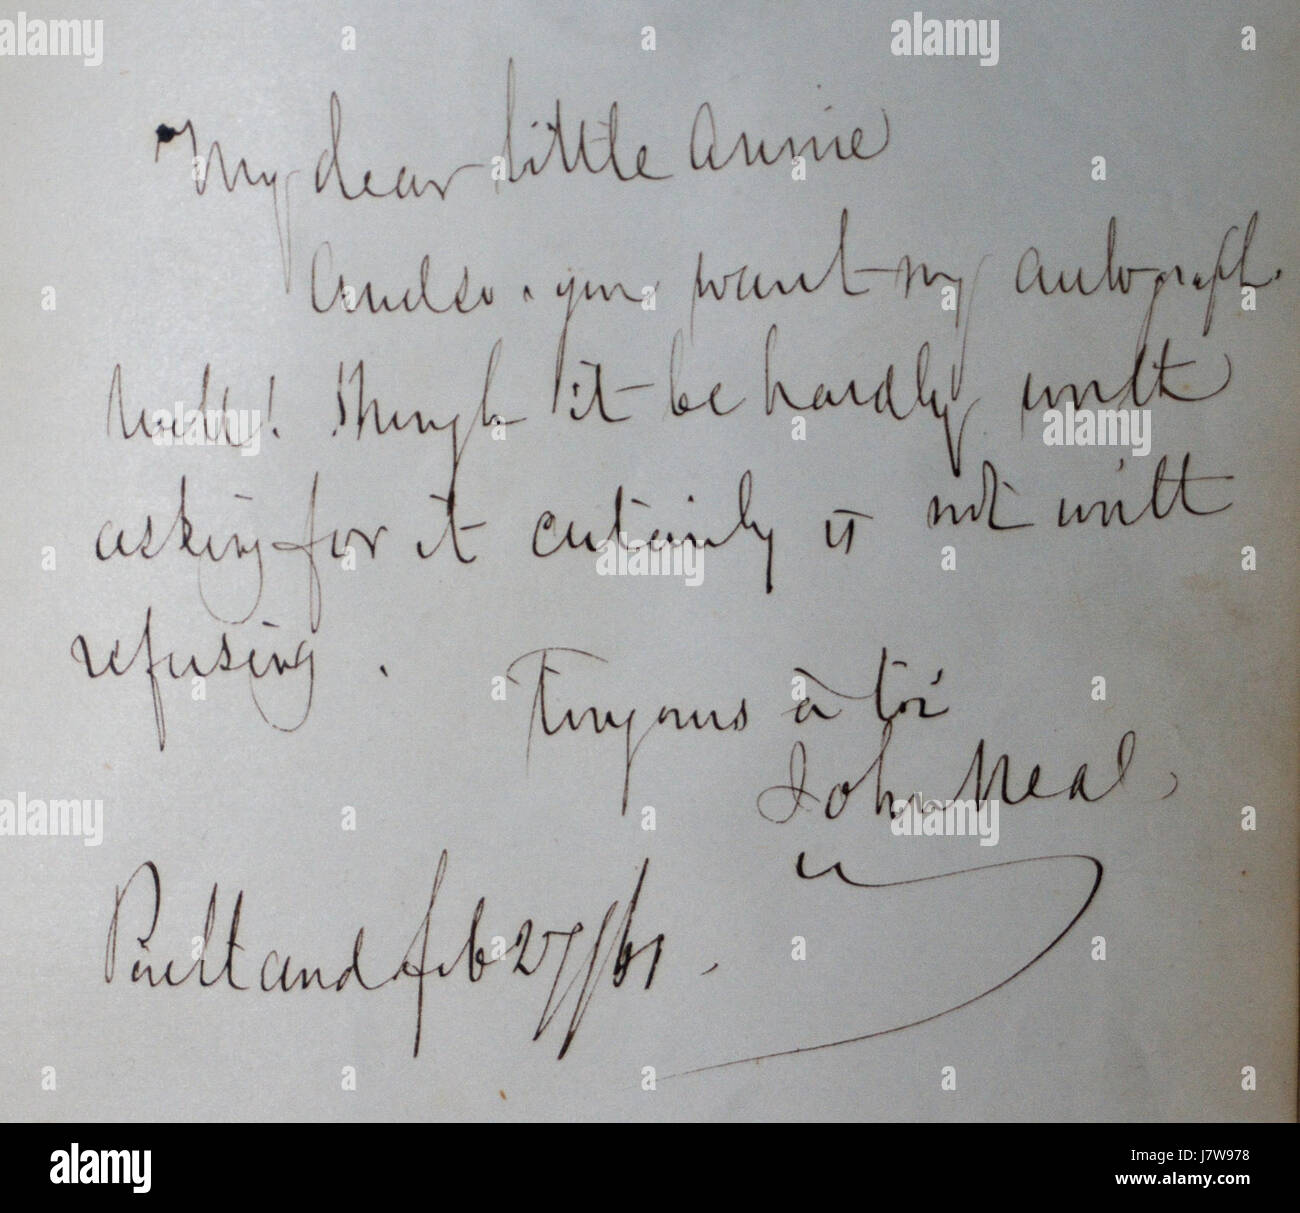 My dear little Annie
And so you want my autograph.
Well! Though it be hardly worth
asking for it certainly is not worth
refusing.
à toi
John Neal,
Portland Feb 27/61.
alamy
alamy
Image ID: J7W978
www.alamy.com